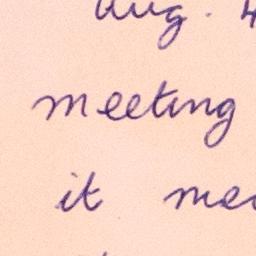 Aug. 4
meeting
it